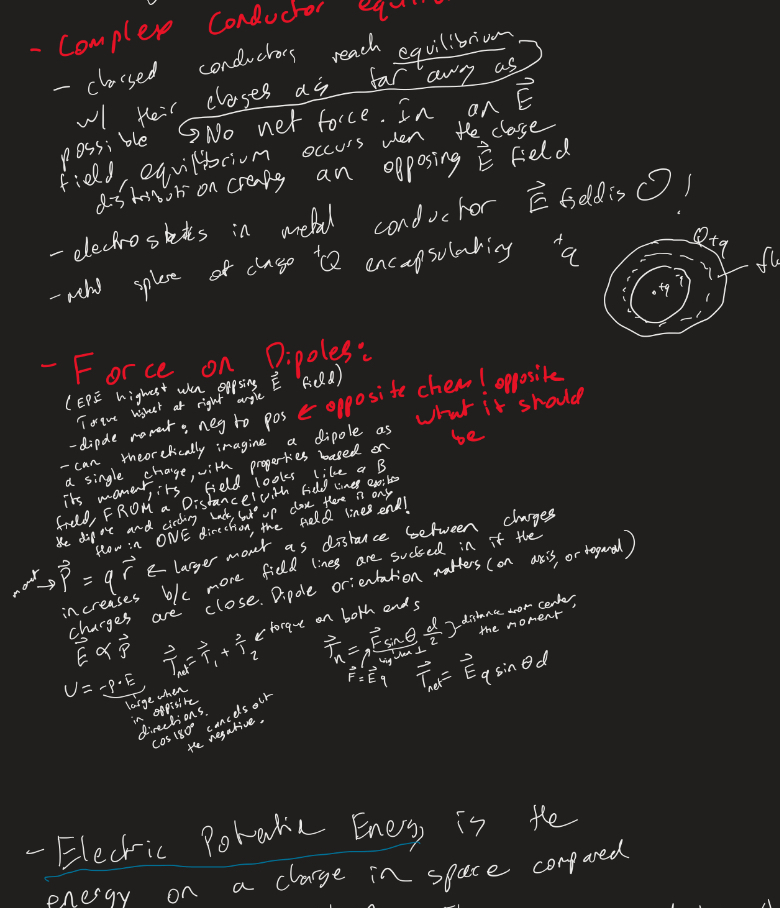 - Complex Conductor
- charged conductors reach equilibrium
w/ their charges as far away as
possible ↳ No net force. In an E⃗
field, equilibrium occurs when the charge
distribution creates an opposing E⃗ field
- electrostatics in metal conductor E⃗ field is 0!
- metal sphere of charge +Q encapsulating +q
Q+q
+q
- Force on Dipoles:
(EPE highest when opposing E⃗ field)
Torque highest at right angle
- dipole moment: neg to pos ← opposite chem! opposite
what it should
be
- can theoretically imagine a dipole as
a single charge, with properties based on
its moment, its field looks like a B
field, FROM a Distance! with field lines
the dipole and circling back, but up close there is only
flow in ONE direction, the field lines end!
moment → P⃗ = q r⃗ ← larger moment as distance between charges
increases b/c more field lines are sucked in if the
charges are close. Dipole orientation matters (on axis, or
E⃗ ∝ P⃗
T⃗net = T⃗1 + T⃗2 ← torque on both ends
T⃗n = F⃗ sinθ d/2 } distance from center,
the moment,
F⃗ = E⃗q
T⃗net = E⃗ q sinθ d
U = -p·E
large when
in opposite
directions.
cos 180° cancels out
the negative.
- Electric Potential Energy is the
energy on a charge in space compared